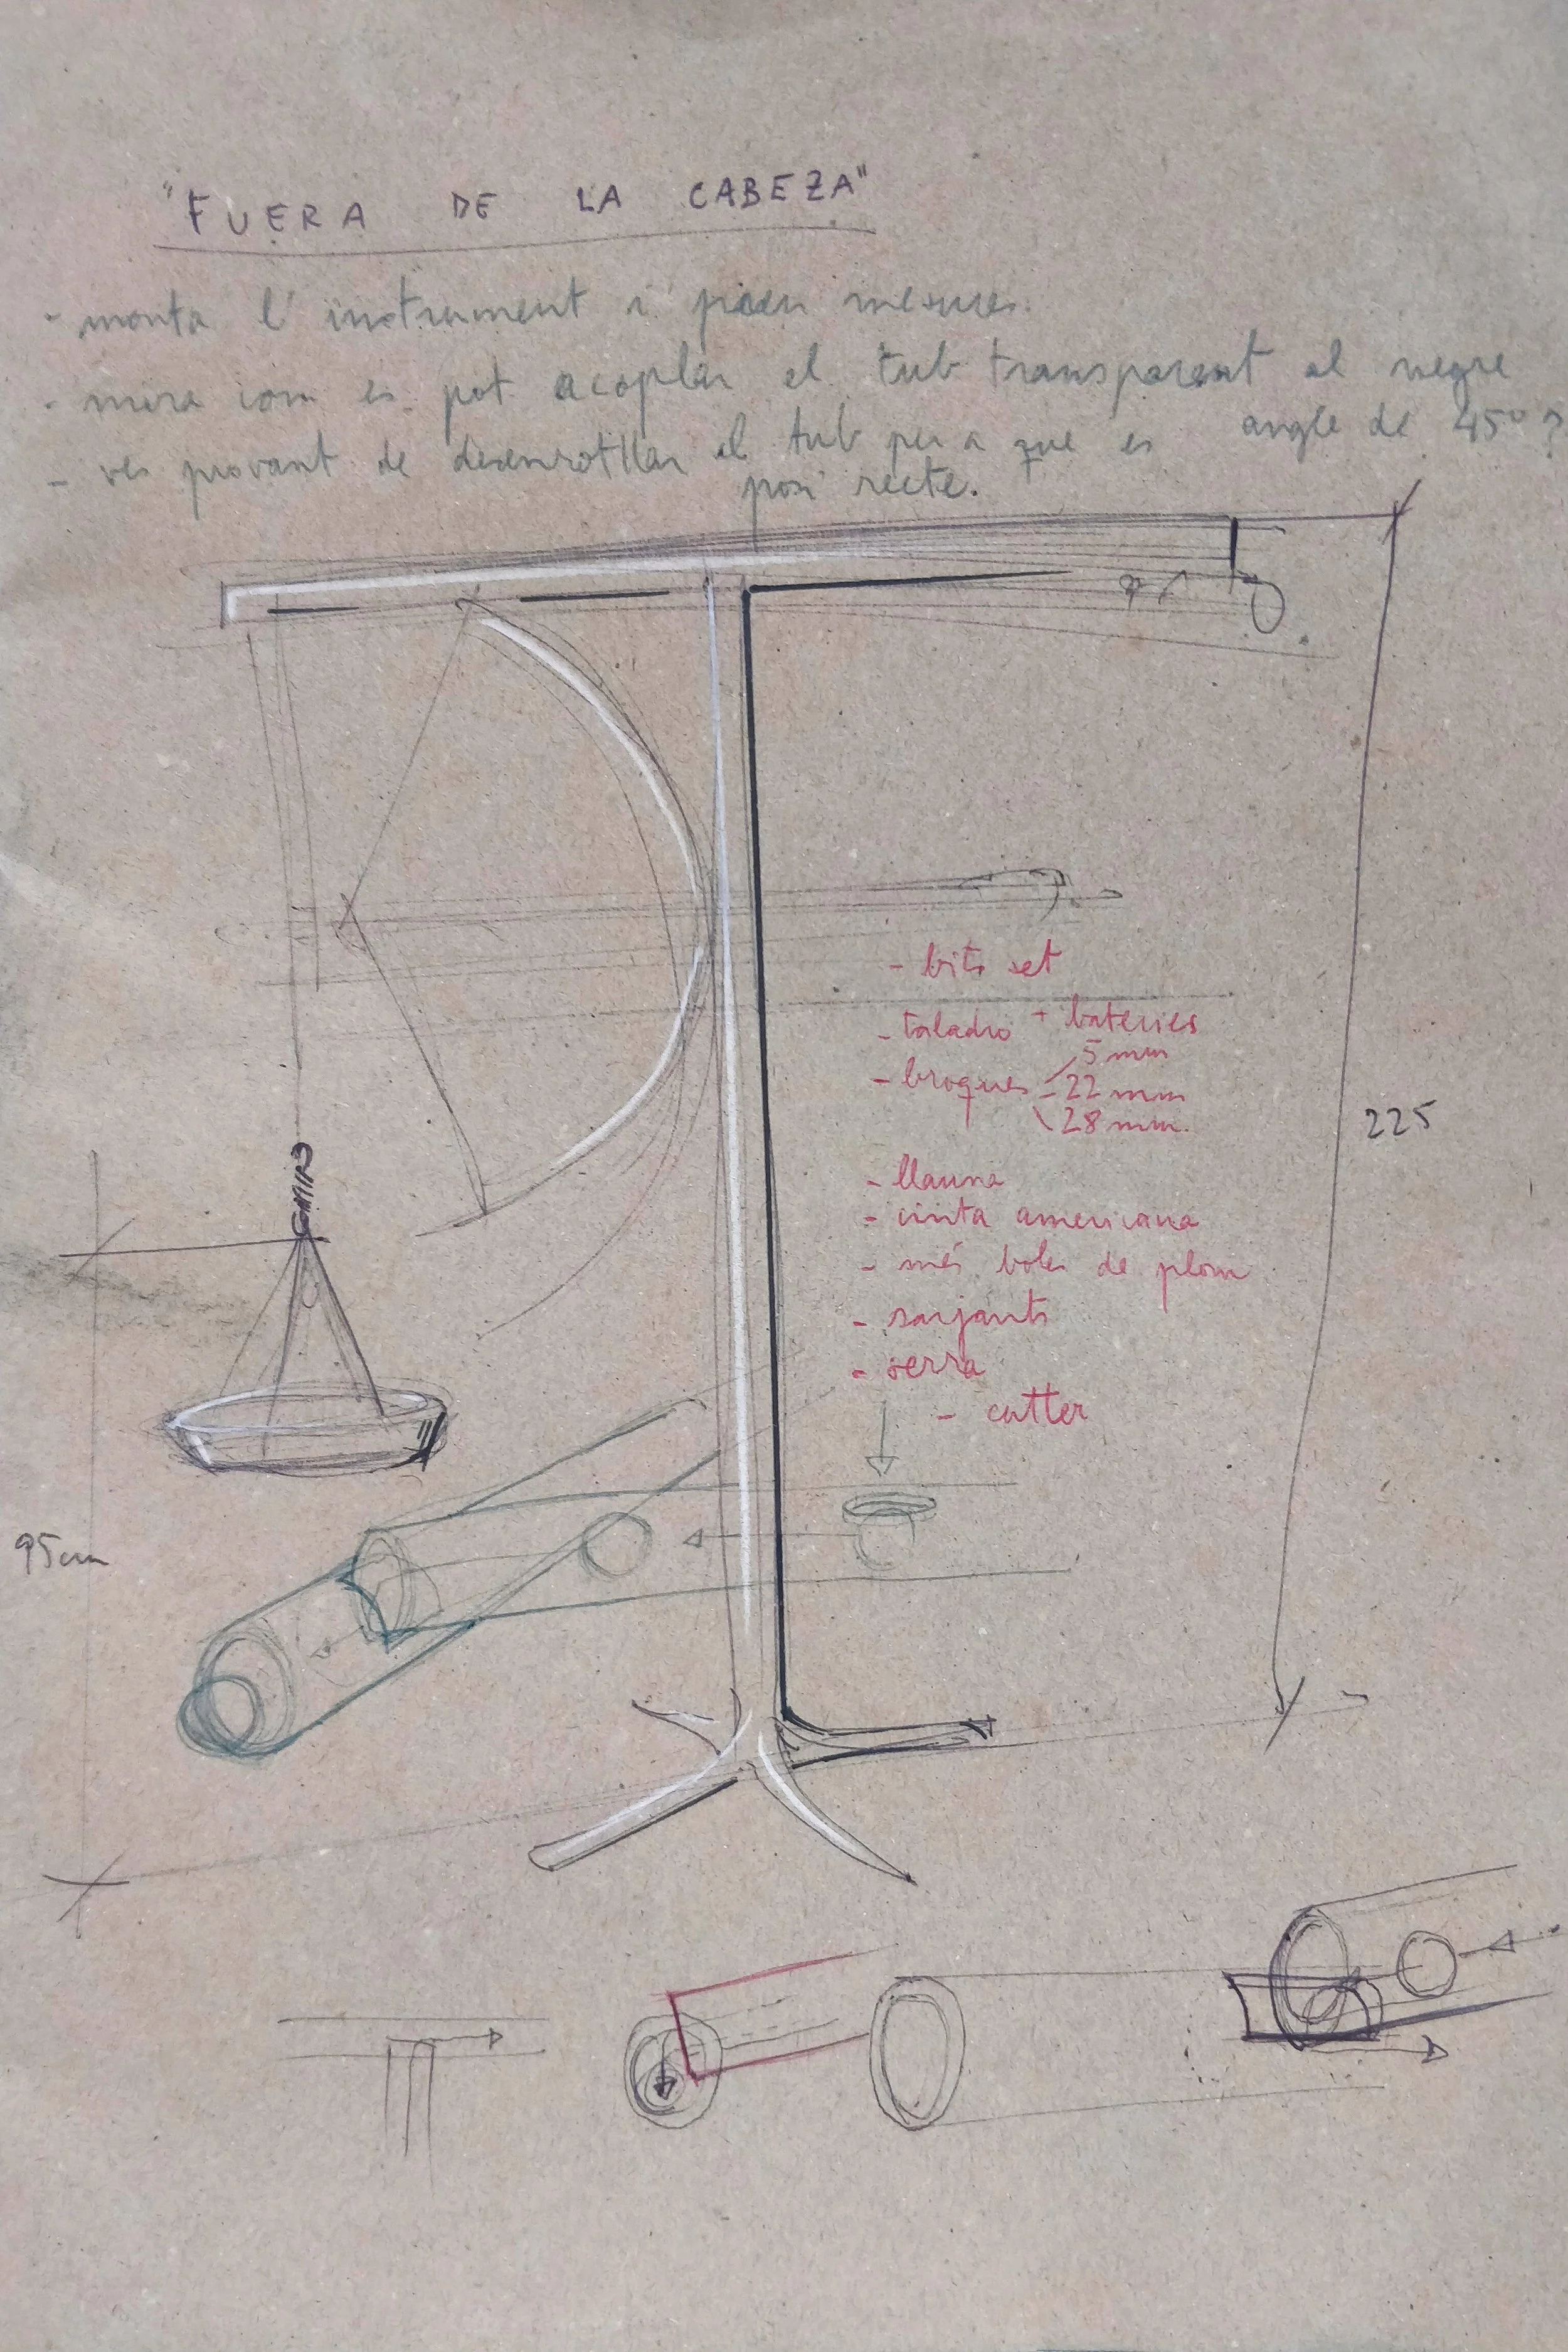 "FUERA DE LA CABEZA"
- monta l'instrument i pren mesures.
- mira com es pot acoplar el tub transparent al negre
angle de 45º?
- ves provant de desenrotllar el tub per a que es
posi recte.
- bits set
- taladro + bateries
- broques 5 mm
- 22 mm
28 mm.
225
- llauna
- cinta americana
- més boles de plom
- sarjants
- serra
- cutter
95cm